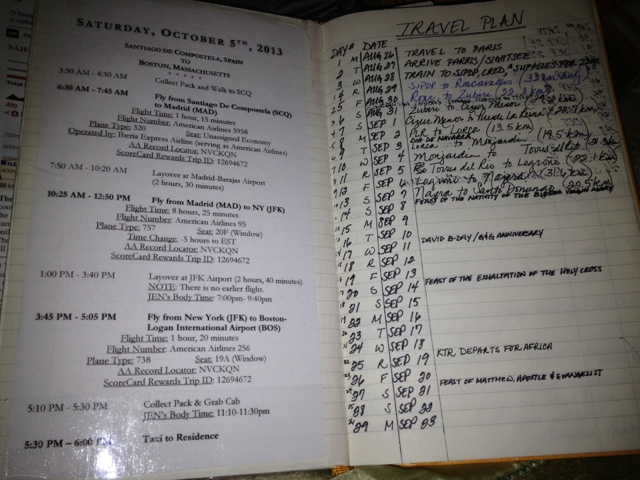 SATURDAY, OCTOBER 5TH, 2013
SANTIAGO DE COMPOSTELA, SPAIN
TO
BOSTON, MASSACHUSETTS
* * * * *
3:30 AM - 4:30 AM Collect Pack and Walk to SCQ
6:30 AM - 7:45 AM Fly from Santiago De Compostela (SCQ)
to Madrid (MAD)
Flight Time: 1 hour, 15 minutes
Flight Number: American Airlines 5958
Plane Type: 320 Seat: Unassigned Economy
Operated by: Iberia Express Airline (serving as American Airlines)
AA Record Locator: NVCKQN
ScoreCard Rewards Trip ID: 12694672
7:50 AM - 10:20 AM Layover at Madrid-Barajas Airport
(2 hours, 30 minutes)
10:25 AM - 12:50 PM Fly from Madrid (MAD) to NY (JFK)
Flight Time: 8 hours, 25 minutes
Flight Number: American Airlines 95
Plane Type: 757 Seat: 20F (Window)
Time Change: -5 hours to EST
AA Record Locator: NVCKQN
ScoreCard Rewards Trip ID: 12694672
1:00 PM - 3:40 PM Layover at JFK Airport (2 hours, 40 minutes)
NOTE: There is no earlier flight.
JEN's Body Time: 7:00pm- 9:40pm
3:45 PM - 5:05 PM Fly from New York (JFK) to Boston-
Logan International Airport (BOS)
Flight Time: 1 hour, 20 minutes
Flight Number: American Airlines 256
Plane Type: 738 Seat: 19A (Window)
AA Record Locator: NVCKQN
ScoreCard Rewards Trip ID: 12694672
5:10 PM - 5:30 PM Collect Pack & Grab Cab
JEN's Body Time: 11:10-11:30pm
5:30 PM - 6:00 PM Taxi to Residence
TRAVEL PLAN
DAY# DATE
1 M AUG 26 TRAVEL TO PARIS
2 T AUG 27 ARRIVE PARRIS/SIGHTSEE
3 W AUG 28 TRAIN TO SJPDP, CRED. & SUPPLIES FOR
R AUG 29 SJPDP to Roncesvalles
F AUG 30 Ronc. to Zubiri
S AUG 31 Zubiri to Cizur Menor
S SEP 1 Cizur Menor to Puente La Reina
M SEP 2 to Lorca (13.5 km)
T SEP 3 Lorca to Monjardin (19.5 km)
W SEP 4 Monjardin to Torres del Rio
R SEP 5 Torres del Rio to Logroño (22.1 km)
F SEP 6 Logroño to Najera
S SEP 7 Najera to Santo Domingo
S SEP 8 FEAST OF THE NATIVITY OF THE
M SEP 9
T SEP 10 DAVID B-DAY/ ANNIVERSARY
W SEP 11
R SEP 12
F SEP 13
S SEP 14 FEAST OF THE EXHALTATION OF THE HOLY CROSS
S SEP 15
M SEP 16
T SEP 17
W SEP 18
R SEP 19 KTR DEPARTS FOR AFRICA
F SEP 20
27 S SEP 21 FEAST OF MATTHEW, APOSTLE & EVANGELIST
28 S SEP 22
29 M SEP 23